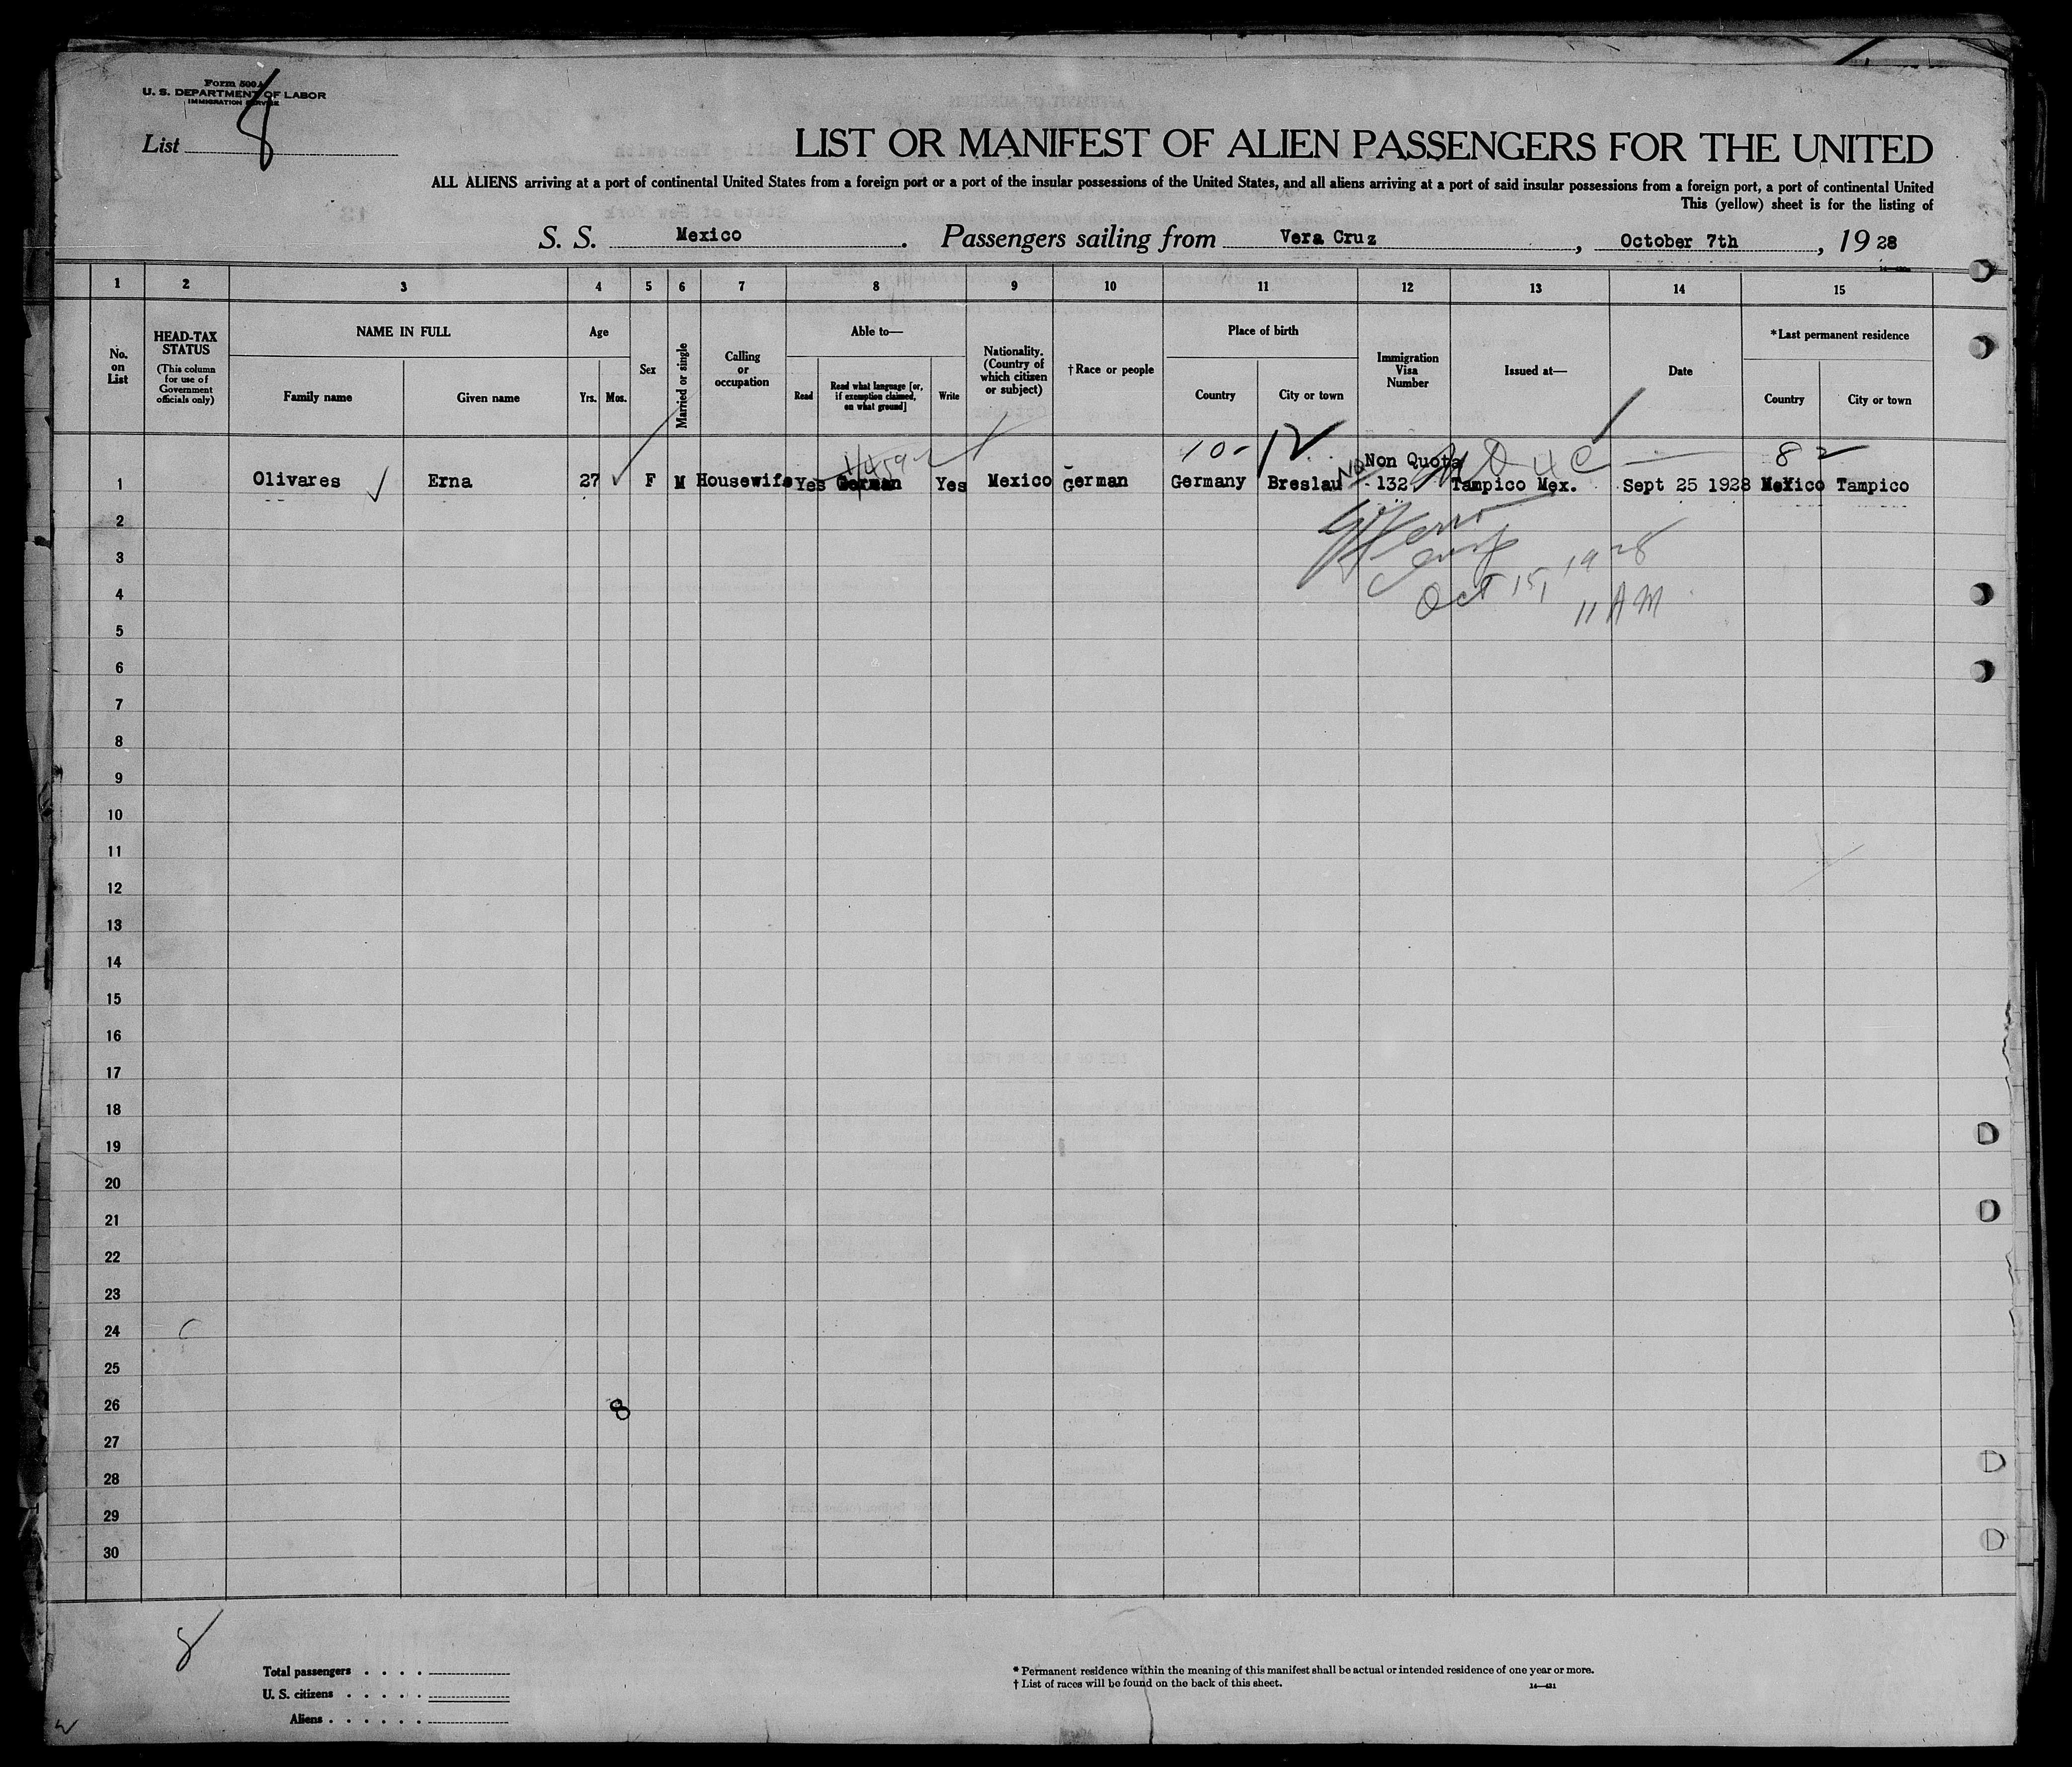 Form 500A
U. S. DEPARTMENT OF LABOR
IMMIGRATION SERVICE
List 8
LIST OR MANIFEST OF ALIEN PASSENGERS FOR THE UNITED
ALL ALIENS arriving at a port of continental United States from a foreign port or a port of the insular possessions of the United States, and all aliens arriving at a port of said insular possessions from a foreign port, a port of continental United
This (yellow) sheet is for the listing of
S. S. Mexico. Passengers sailing from Vera Cruz, October 7th, 19 28
1 2 3 4 5 6 7 8 9 10 11 12 13 14 15
No. on List
HEAD-TAX STATUS
(This column for use of Government officials only)
NAME IN FULL
Family name Given name
Age
Yrs. Mos.
Sex
Married or single
Calling or occupation
Able to—
Read
Read what language [or, if exemption claimed, on what ground]
Write
Nationality. (Country of which citizen or subject)
† Race or people
Place of birth
Country City or town
Immigration Visa Number
Issued at—
Date
*Last permanent residence
Country City or town
10- 12 82
Non Quota
1 Olivares Erna 27 F M Housewife Yes German Yes Mexico German Germany Breslau No 132. Tampico Mex. Sept 25 1928 Mexico Tampico
2
3
Oct 15, 1928
4
11 AM
5
6
7
8
9
10
11
12
13
14
15
16
17
18
19
20
21
22
23
24
25
26
8
27
28
29
30
8
Total passengers . . . .
U. S. citizens . . . . .
Aliens . . . . . .
* Permanent residence within the meaning of this manifest shall be actual or intended residence of one year or more.
† List of races will be found on the back of this sheet.
14—431